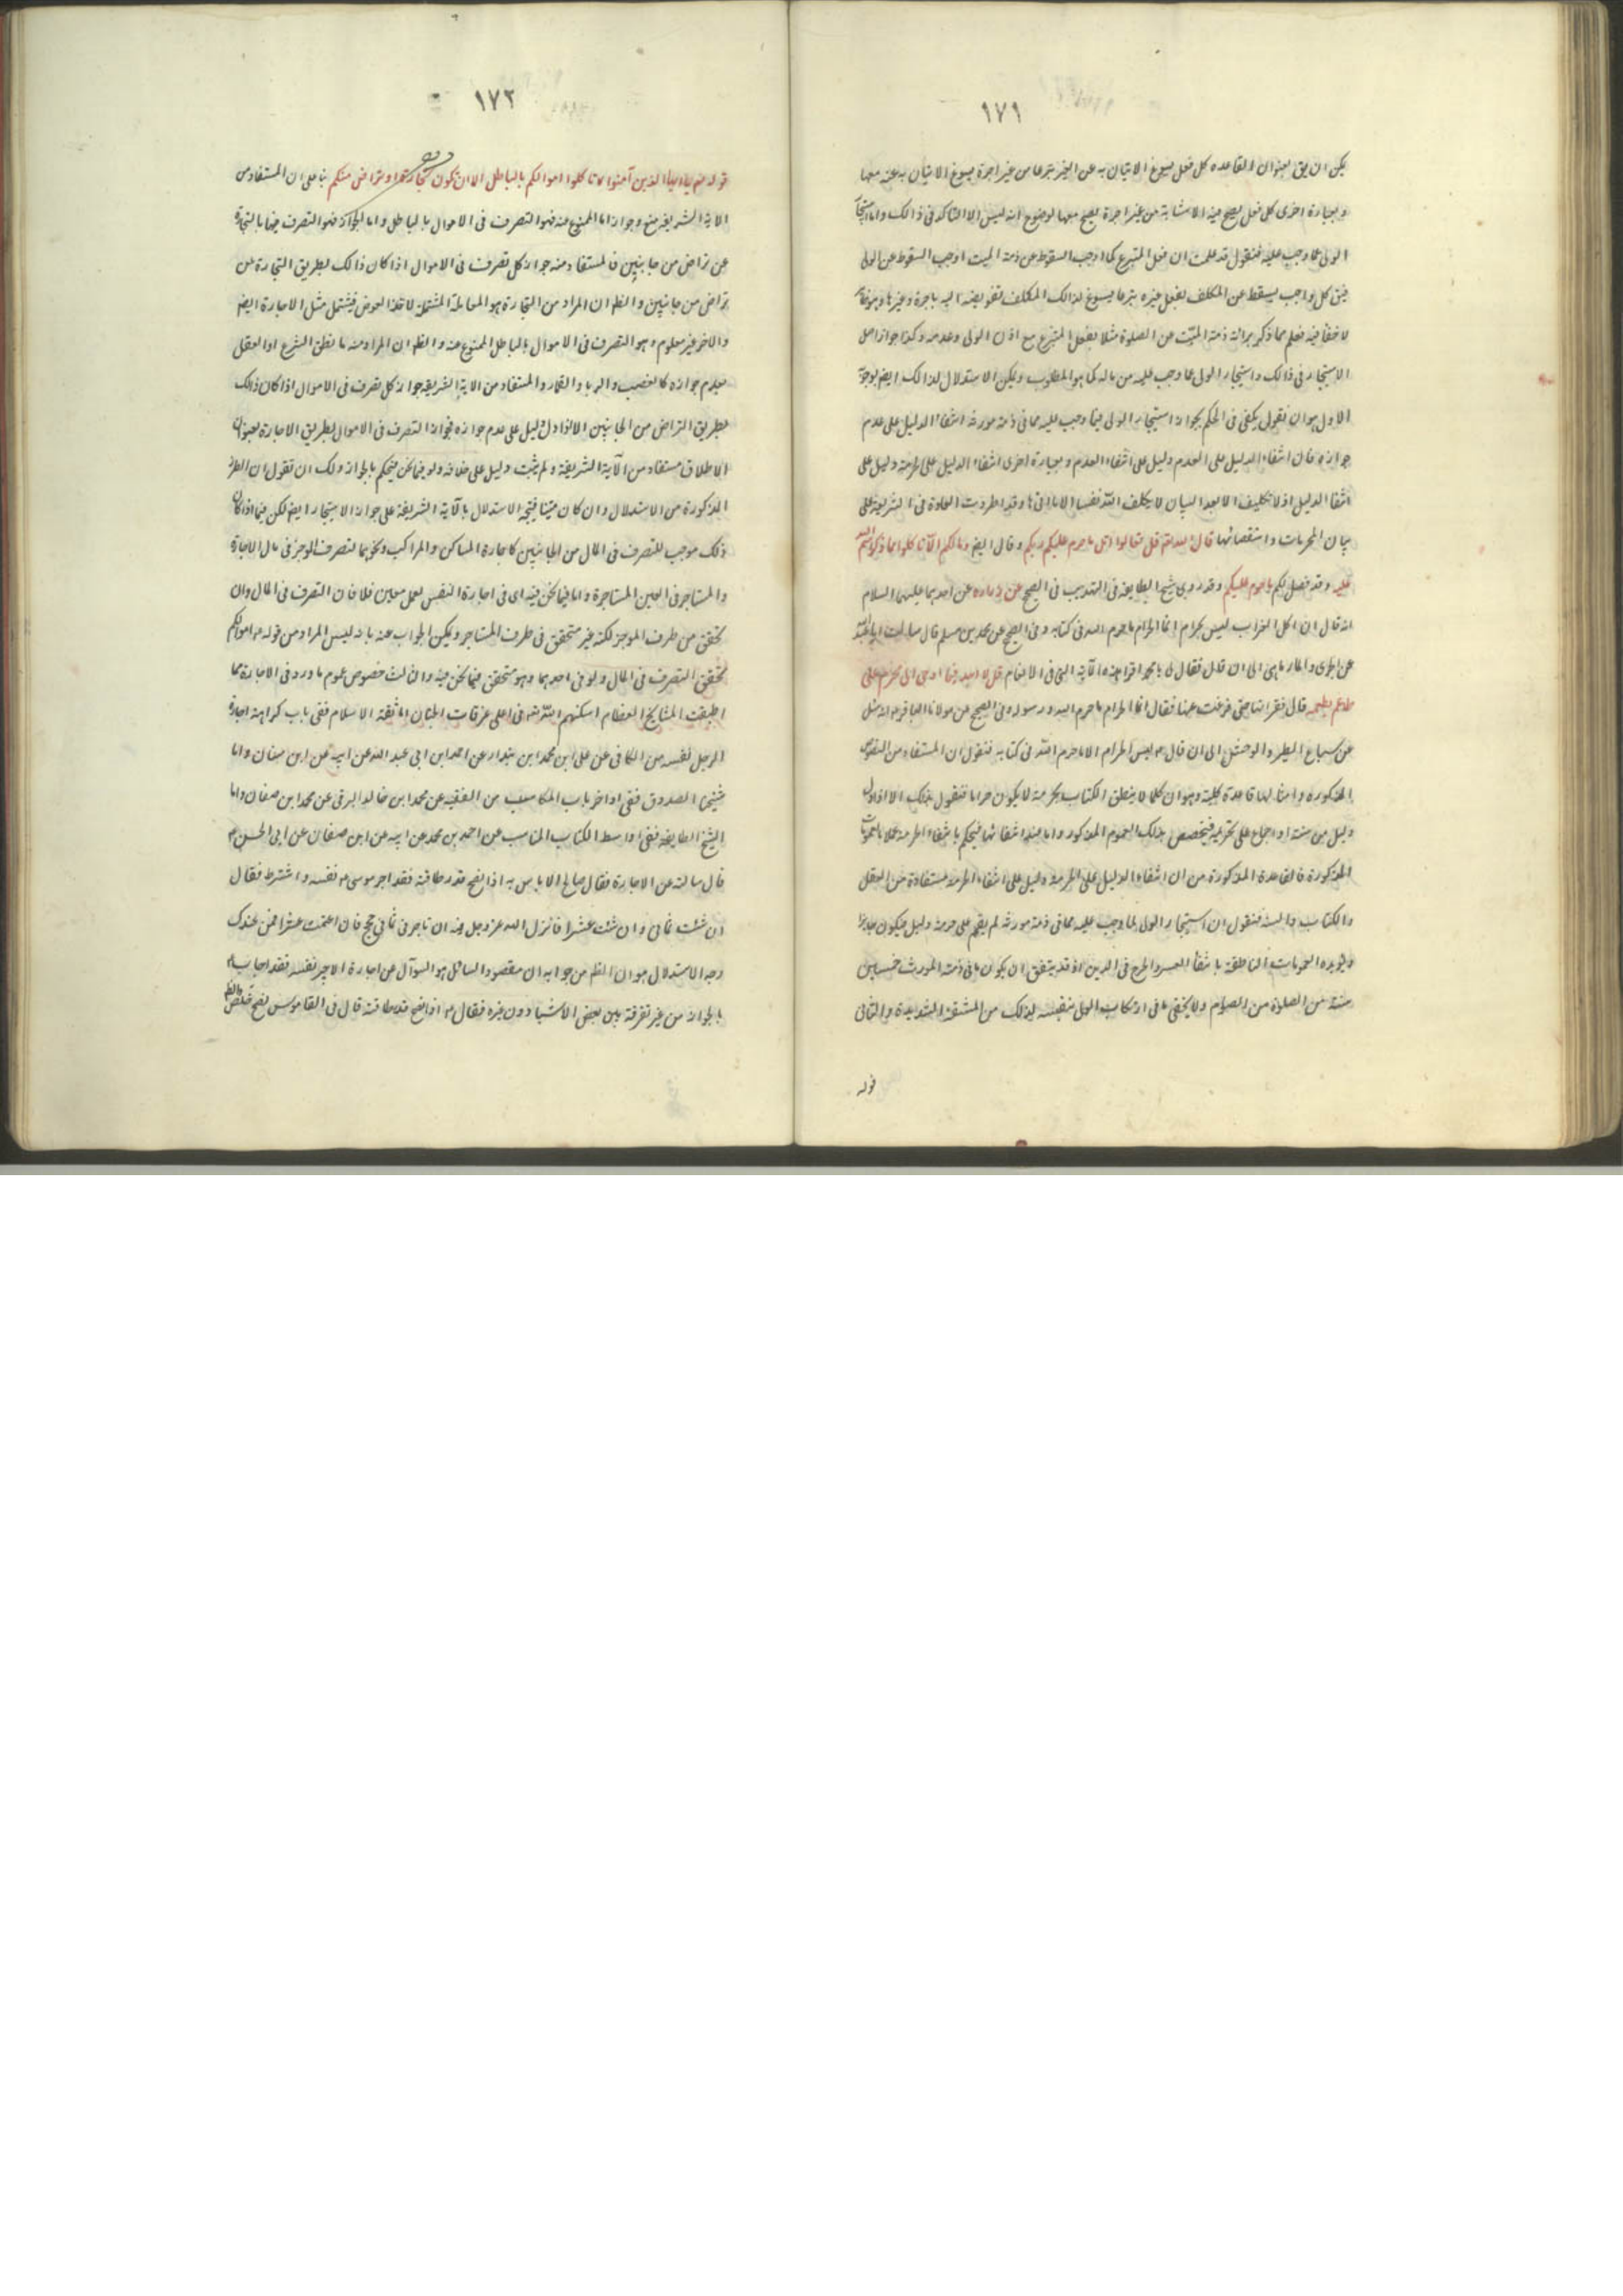 ١٧١
يمكن ان يق بعنوان القاعده كل فعل يسوغ الاتيان به عن الغير تبرعا من غير اجرة يسوغ الاتيان به عنه معها
وبعبارة اخرى كل فعل يصح فيه الانابة من غير اجرة يصح معها لوضوح انه ليس الا التاكد فى ذالك واما استيجار
الولى عما وجب عليه فنقول قد علمت ان فعل المتبرع كما اوجب السقوط عن ذمة الميت اوجب السقوط عن الولى
فيق كل واجب يسقط عن المكلف بفعل غيره تبرعا يسوغ لذالك المكلف تفويضه اليه باجرة وغيرها
لا خفأ فيه فعلم مما ذكر برائة ذمة الميّت عن الصلوة مثلا بفعل المتبرع مع اذن الولى وعدمه وكذا جواز اصل
الاستيجار فى ذالك واستيجار الولى عما وجب عليه من ماله كما هو المطلوب ويمكن الاستدلال لذالك ايضم بوجوه
الاول هو ان نقول يكفى فى الحكم بجواز استيجار الولى فيما وجب عليه مما فى ذمة مورثه انتفاء الدليل على عدم
جوازه فان انتفاء الدليل على العدم دليل على انتفاء العدم وبعبارة اخرى انتفاء الدليل على الحرمة دليل على
انتفا الدليل اذ لا تكليف الا بعد البيان لا يكلف الله نفسا الا ما اتيها وقد اطردت العادة فى الشريعة على
بيان المحرمات واستقصائها قال الله تعم قل تعالوا اتل ما حرم عليكم ربكم وقال ايضم ومالكم الّا تاكلوا مما ذكر اسم الله
عليه وقد فصل لكم ما حرم عليكم وقد روى شيخ الطايفه فى التهذيب فى الصحيح عن زراره عن احدهما عليهما السلام
انه قال ان اكل الغراب ليس بحرام انما الحرام ما حرم الله فى كتابه وفى الصحيح عن محمد بن مسلم قال سالت ابا عبد الله
عن الجرى والمارماهى الى ان قال فقال لى يا محمد اقرا هذه الآية التى فى الانعام قل لا اجد فيما اوحى الى محرم على
طاعم يطعمه قال فقراتها حتى فرغت منها فقال انما الحرام ما حرم الله ورسوله وفى الصحيح عن مولانا الباقر م انه سئل
عن سباع الطير والوحش الى ان قال م ليس الحرام الا ما حرم الله فى كتابه فنقول ان المستفاد من النصوص
المذكورة وامثالها قاعدة كلية وهو ان كلما لا ينطق الكتاب بحرمة لا يكون حراما فنقول بذلك الا اذا دل
دليل من سنة او اجماع على تحريمه فيتخصص بذالك العموم المذكور واما عند انتفائها فيحكم بانتفاء الحرمة عملا بالعمومات
المذكورة فالقاعدة المذكورة من ان انتفاء الدليل على الحرمة دليل على انتفاء الحرمة مستفادة من العقل
والكتاب والسنة فنقول ان استيجار الولى لما وجب عليه مما فى ذمة مورثه لم يقم على حرمته دليل فيكون جايزا
ويؤيده العمومات الناطقة بانتفأ العسر والحرج فى الدين اذ قد يتفق ان يكون ما فى ذمة المورث خمسين
سنة من الصلوة من الصيام ولا يخفى ما فى ارتكاب الولى بنفسه لذالك من المشقة الشديدة والثانى
قوله
١٧٢
قوله تعم ياايها الذين آمنوا لا تاكلوا اموالكم بالباطل الا ان تكون تجارة عن تراض منكم بنا على ان المستفاد من
الاية الشريفه منع وجواز اما الممنوع عنه فهو التصرف فى الاموال بالباطل واما الجواز فهو التصرف فيها بالتجارة
عن تراض من جانبين فالمستفاد منه جواز كل تصرف فى الاموال اذا كان ذالك بطريق التجارة عن
تراض من جانبين والظم ان المراد من التجارة هو المعاملة المشتملة لاخذ العوض فيشتمل مثل الاجارة ايضم
والاخر غير معلوم وهو التصرف فى الاموال بالباطل الممنوع عنه والظم ان المراد منه ما نطق الشرع او العقل
بعدم جوازه كالغصب والربا والقمار والمستفاد من الاية الشريفه جواز كل تصرف فى الاموال اذا كان ذالك
بطريق التراض من الجانبين الا اذا دل دليل على عدم جوازه فجواز التصرف فى الاموال بطريق الاجارة بعنوان
الاطلاق مستفاد من الآية الشريفة ولم يثبت دليل على خلافه ولو فيما نحن فيه فيحكم بالجواز ولك ان تقول ان الطرز
المذكورة من الاستدلال وان كان متينا فيتجه الاستدلال بالآية الشريفة على جواز الاستيجار ايضم لكن فيما اذا كان
ذلك موجب للتصرف فى المال من الجانبين كاجارة المساكن والمراكب ونحوهما لتصرف الموجر فى مال الاجارة
والمستاجر فى العين المستاجرة واما فيما نحن فيه اى فى اجارة النفس لعمل معين فلا فان التصرف فى المال وان
تحقق من طرف الموجر لكنه غير متحقق فى طرف المستاجر ويمكن الجواب عنه بانه ليس المراد من قوله م اموالكم
تحقق التصرف فى المال ولو فى احدهما وهو متحقق فيما نحن فيه والثالث خصوص عموم ما ورد فى الاجارة مما
اطبقت المشايخ العظام اسكنهم الله تعم فى اعلى غرفات الجنان اما ثقة الاسلام ففى باب كراهة اجارة
الرجل نفسه من الكافى عن على ابن محمد ابن بندار عن احمد ابن ابى عبد الله عن ابيه عن ابن سنان واما
شيخنا الصدوق ففى اواخر باب المكاسب من الفقيه عن محمد ابن خالد البرقى عن محمد ابن صفان واما
الشيخ الطايفه ففى اواسط الكتاب المكاسب عن احمد بن محمد عن ابيه عن ابن صفان عن ابى الحسن م
قال سالته عن الاجارة فقال صالح لا باس به اذا نصح قدر طاقته فقد اجر موسى م نفسه واشترط فقال
ان شئت ثمانى وان شئت عشرا فانزل الله عز وجل فيه ان تاجرنى ثمانى حجج فان اتممت عشرا فمن عندك
وجه الاستدلال هو ان الظم من جوابه ان مقصود السائل هو السوآل عن اجارة الاجير نفسه فقد اجاب م
بالجواز من غير تفرقة بين بعض الاشيا دون غيره فقال م اذا نصح قدر طاقته قال فى القاموس نصح خلص